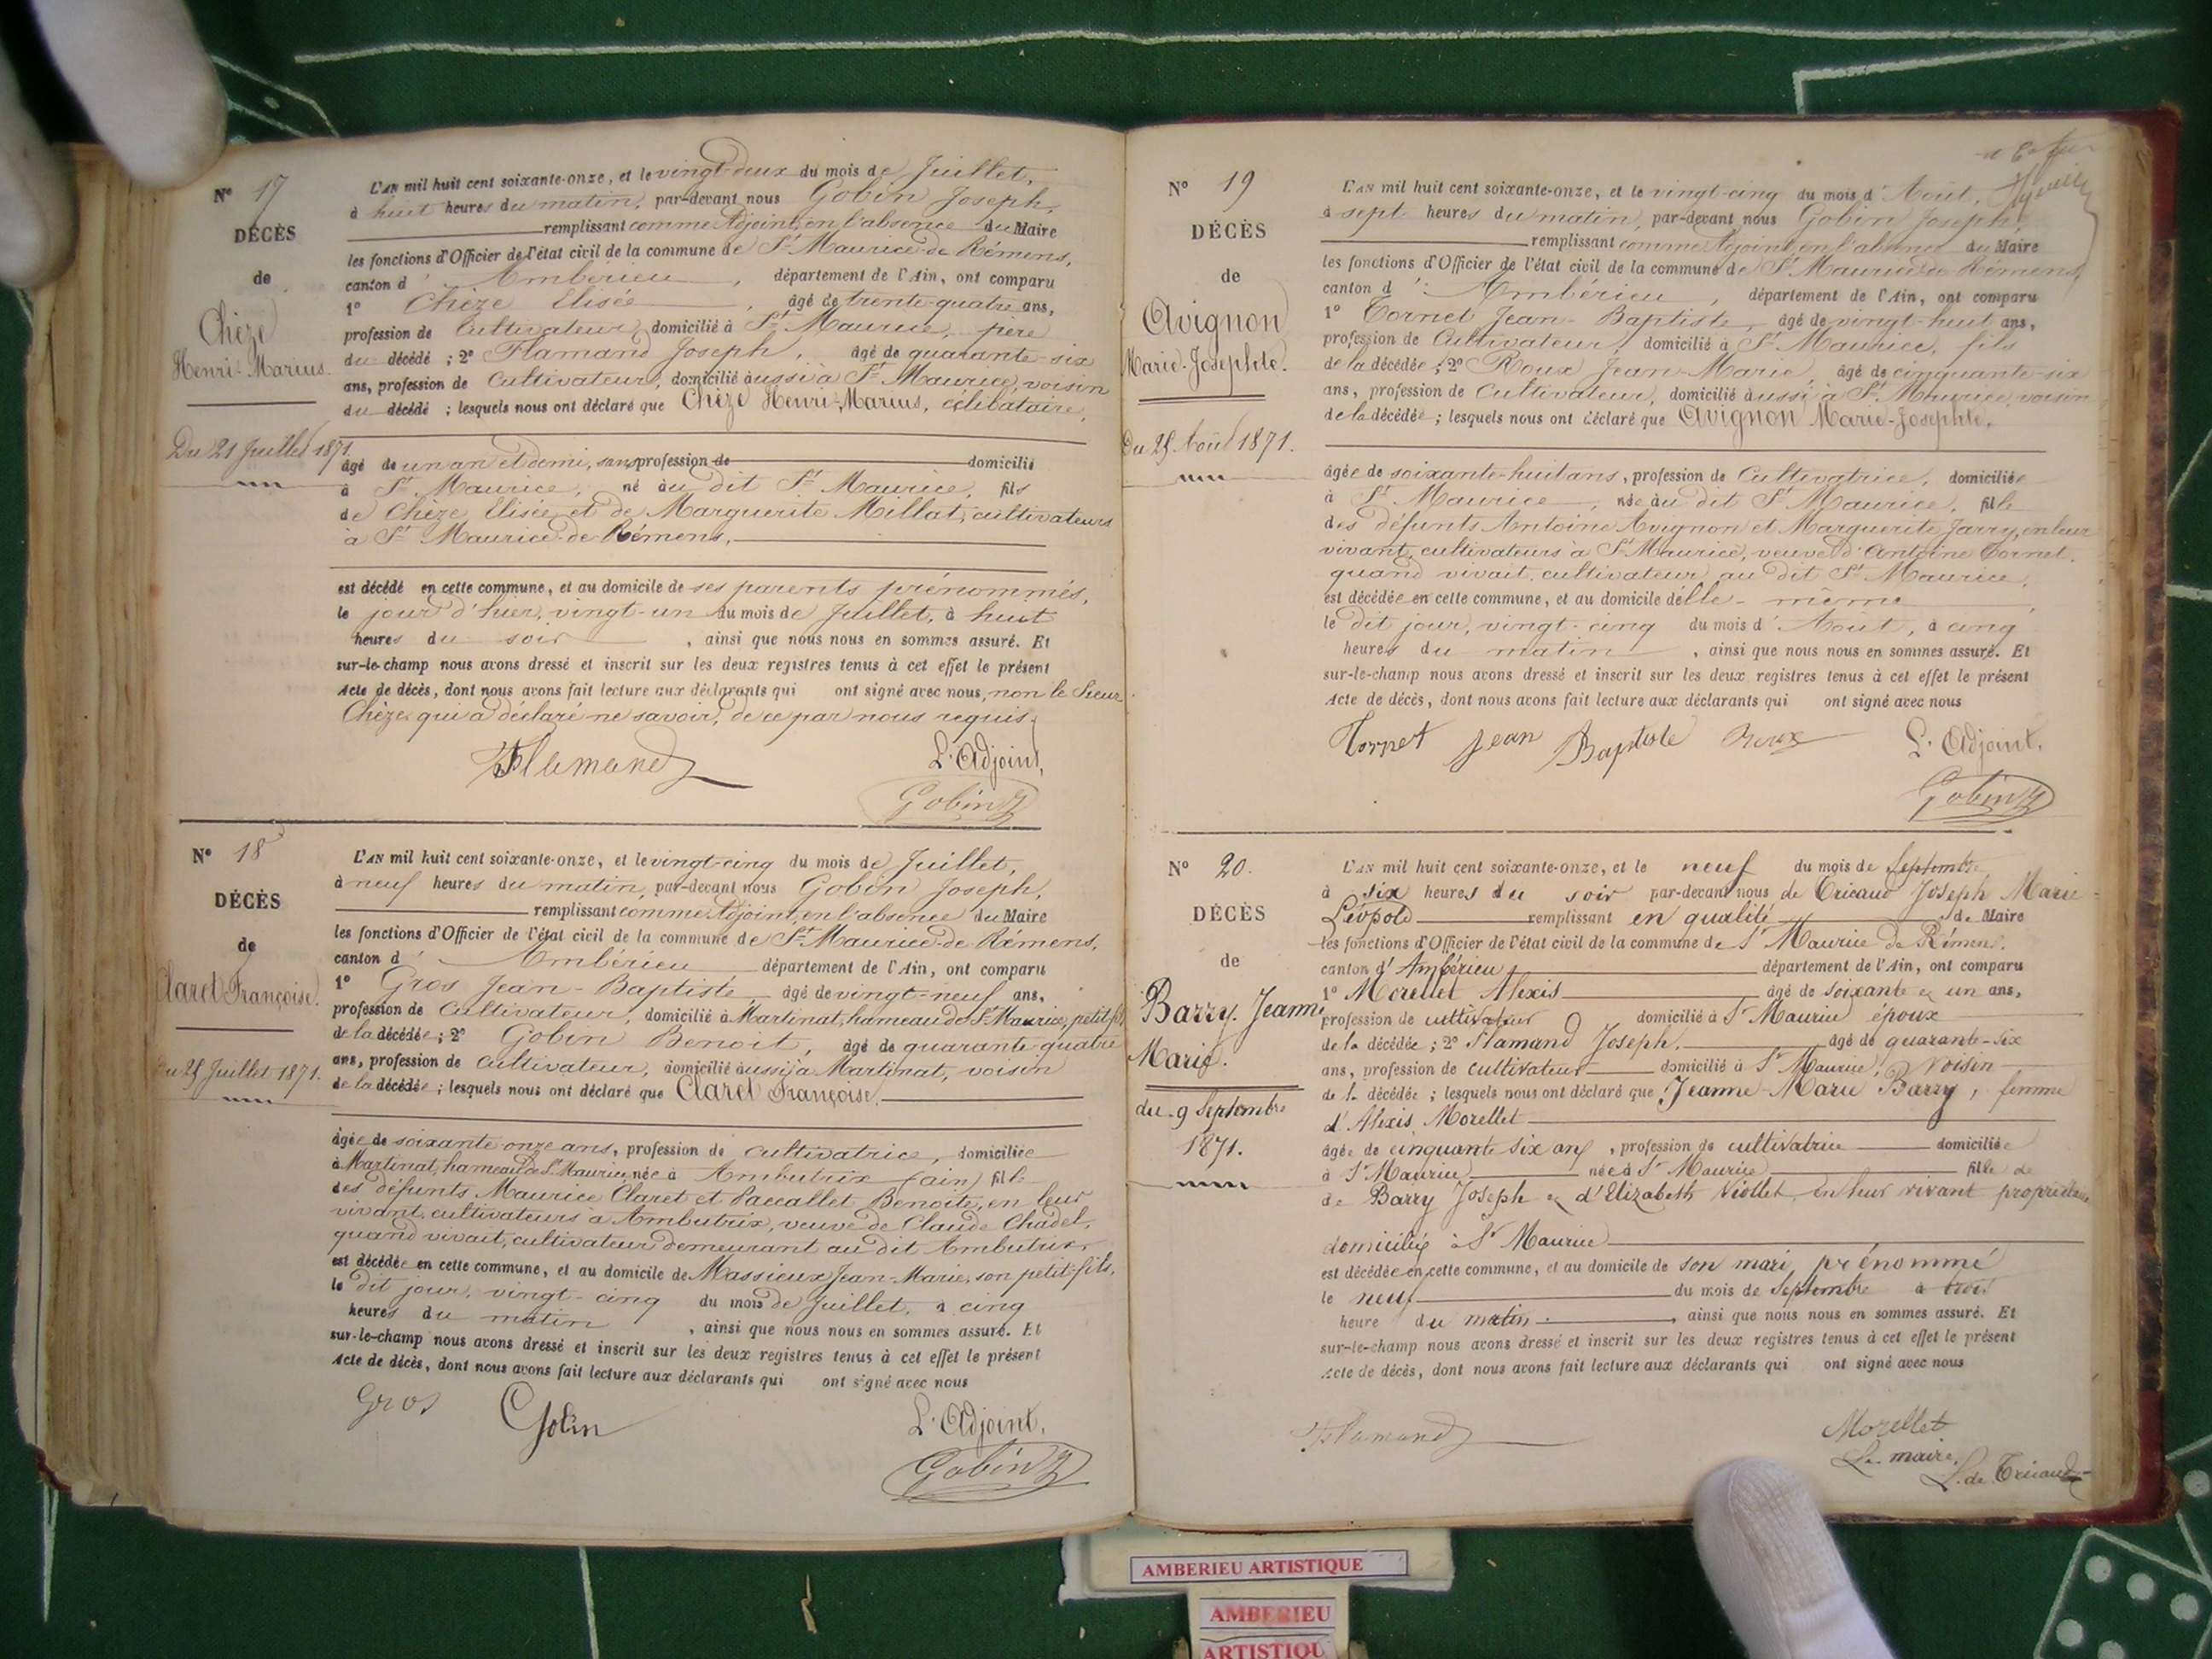 N° 17
DÉCÈS
de
Chèze
Henri-Marius.
Du 21 Juillet 1871.
L'AN mil huit cent soixante-onze, et le vingt-deux du mois de Juillet,
à huit heures du matin, par-devant nous Gobin Joseph,
remplissant comme Adjoint, en l'absence du Maire
les fonctions d'Officier de l'état civil de la commune de St Maurice-de-Rémens,
canton d'Ambérieu, département de l'Ain, ont comparu
1° Chèze Elisée, âgé de trente-quatre ans,
profession de Cultivateur, domicilié à St Maurice, père
du décédé ; 2° Flamand Joseph, âgé de quarante-six
ans, profession de Cultivateur, domicilié aussi à St Maurice, voisin
du décédé ; lesquels nous ont déclaré que Chèze Henri-Marius, célibataire,
âgé de un an et demi, sans profession de domicilié
à St Maurice, né au dit St Maurice, fils
de Chèze Elisée et de Marguerite Millat, cultivateurs
à St Maurice-de-Rémens,
est décédé en cette commune, et au domicile de ses parents prénommés,
le jour d'hier, vingt-un du mois de Juillet, à huit
heures du soir, ainsi que nous nous en sommes assuré. Et
sur-le-champ nous avons dressé et inscrit sur les deux registres tenus à cet effet le présent
Acte de décès, dont nous avons fait lecture aux déclarants qui ont signé avec nous, non le Sieur
Chèze qui a déclaré ne savoir, de ce par nous requis.
Flamand
L'Adjoint,
Gobin J
N° 18
DÉCÈS
de
Claret Françoise.
Du 25 Juillet 1871.
L'AN mil huit cent soixante-onze, et le vingt-cinq du mois de Juillet,
à neuf heures du matin, par-devant nous Gobin Joseph,
remplissant comme Adjoint, en l'absence du Maire
les fonctions d'Officier de l'état civil de la commune de St Maurice-de-Rémens,
canton d'Ambérieu département de l'Ain, ont comparu
1° Gros Jean-Baptiste âgé de vingt-neuf ans,
profession de Cultivateur, domicilié à Martinat, hameau de St Maurice, petit-fils
de la décédée ; 2° Gobin Benoit, âgé de quarante-quatre
ans, profession de cultivateur, domicilié aussi à Martinat, voisin
de la décédée ; lesquels nous ont déclaré que Claret Françoise,
âgée de soixante onze ans, profession de cultivatrice, domiciliée
à Martinat, hameau de St Maurice, née à Ambutrix (ain) fille
des défunts Maurice Claret et Paccallet Benoîte, en leur
vivant, cultivateurs à Ambutrix, veuve de Claude Chadel,
quand vivait, cultivateur demeurant au dit Ambutrix,
est décédée en cette commune, et au domicile de Massieux Jean-Marie, son petit-fils,
le dit jour, vingt-cinq du mois de Juillet, à cinq
heures du matin, ainsi que nous nous en sommes assuré. Et
sur-le-champ nous avons dressé et inscrit sur les deux registres tenus à cet effet le présent
Acte de décès, dont nous avons fait lecture aux déclarants qui ont signé avec nous
Gros
Gobin
L'Adjoint,
Gobin J
N° 19
DÉCÈS
de
Avignon
Marie-Josephte.
Du 25 Août 1871.
L'AN mil huit cent soixante-onze, et le vingt-cinq du mois d'Août,
à sept heures du matin, par-devant nous Gobin Joseph,
remplissant comme Adjoint, en l'absence du Maire
les fonctions d'Officier de l'état civil de la commune de St Maurice-de-Rémens,
canton d'Ambérieu, département de l'Ain, ont comparu
1° Tornet Jean-Baptiste, âgé de vingt-huit ans,
profession de Cultivateur, domicilié à St Maurice, fils
de la décédée ; 2° Roux Jean-Marie, âgé de cinquante-six
ans, profession de Cultivateur, domicilié aussi à St Maurice, voisin
de la décédée ; lesquels nous ont déclaré que Avignon Marie-Josephte,
âgée de soixante-huit ans, profession de Cultivatrice, domiciliée
à St Maurice, née au dit St Maurice, fille
des défunts Antoine Avignon et Marguerite Jarry, en leur
vivant, cultivateurs à St Maurice, veuve d'Antoine Tornet,
quand vivait, cultivateur au dit St Maurice,
est décédée en cette commune, et au domicile d'elle-même
le dit jour, vingt-cinq du mois d'Août, à cinq
heures du matin, ainsi que nous nous en sommes assuré. Et
sur-le-champ nous avons dressé et inscrit sur les deux registres tenus à cet effet le présent
Acte de décès, dont nous avons fait lecture aux déclarants qui ont signé avec nous
Tornet Jean Baptiste Roux
L'Adjoint,
Gobin J
N° 20.
DÉCÈS
de
Barry Jeanne
Marie.
du 9 Septembre
1871.
L'AN mil huit cent soixante-onze, et le neuf du mois de Septembre
à six heures du soir par-devant nous de Tricaud Joseph Marie-
Léopold remplissant en qualité de Maire
les fonctions d'Officier de l'état civil de la commune de St Maurice de Rémens.
canton d'Ambérieu, département de l'Ain, ont comparu
1° Morellet Alexis âgé de soixante & un ans,
profession de cultivateur domicilié à St Maurice époux
de la décédée ; 2° Flamand Joseph, âgé de quarante-six
ans, profession de cultivateur domicilié à St Maurice, voisin
de la décédée ; lesquels nous ont déclaré que Jeanne-Marie Barry, femme
d'Alexis Morellet
âgée de cinquante six ans, profession de cultivatrice domiciliée
à St Maurice née à St Maurice fille de
de Barry Joseph & d'Elizabeth Viollet en leur vivant propriétaires
domiciliés à St Maurice
est décédée en cette commune, et au domicile de son mari prénommé
le neuf du mois de Septembre à trois
heure du matin, ainsi que nous nous en sommes assuré. Et
sur-le-champ nous avons dressé et inscrit sur les deux registres tenus à cet effet le présent
Acte de décès, dont nous avons fait lecture aux déclarants qui ont signé avec nous
Flamand
Morellet
Le maire,
L. de Tricaud
AMBERIEU ARTISTIQUE
AMBERIEU
ARTISTIQU